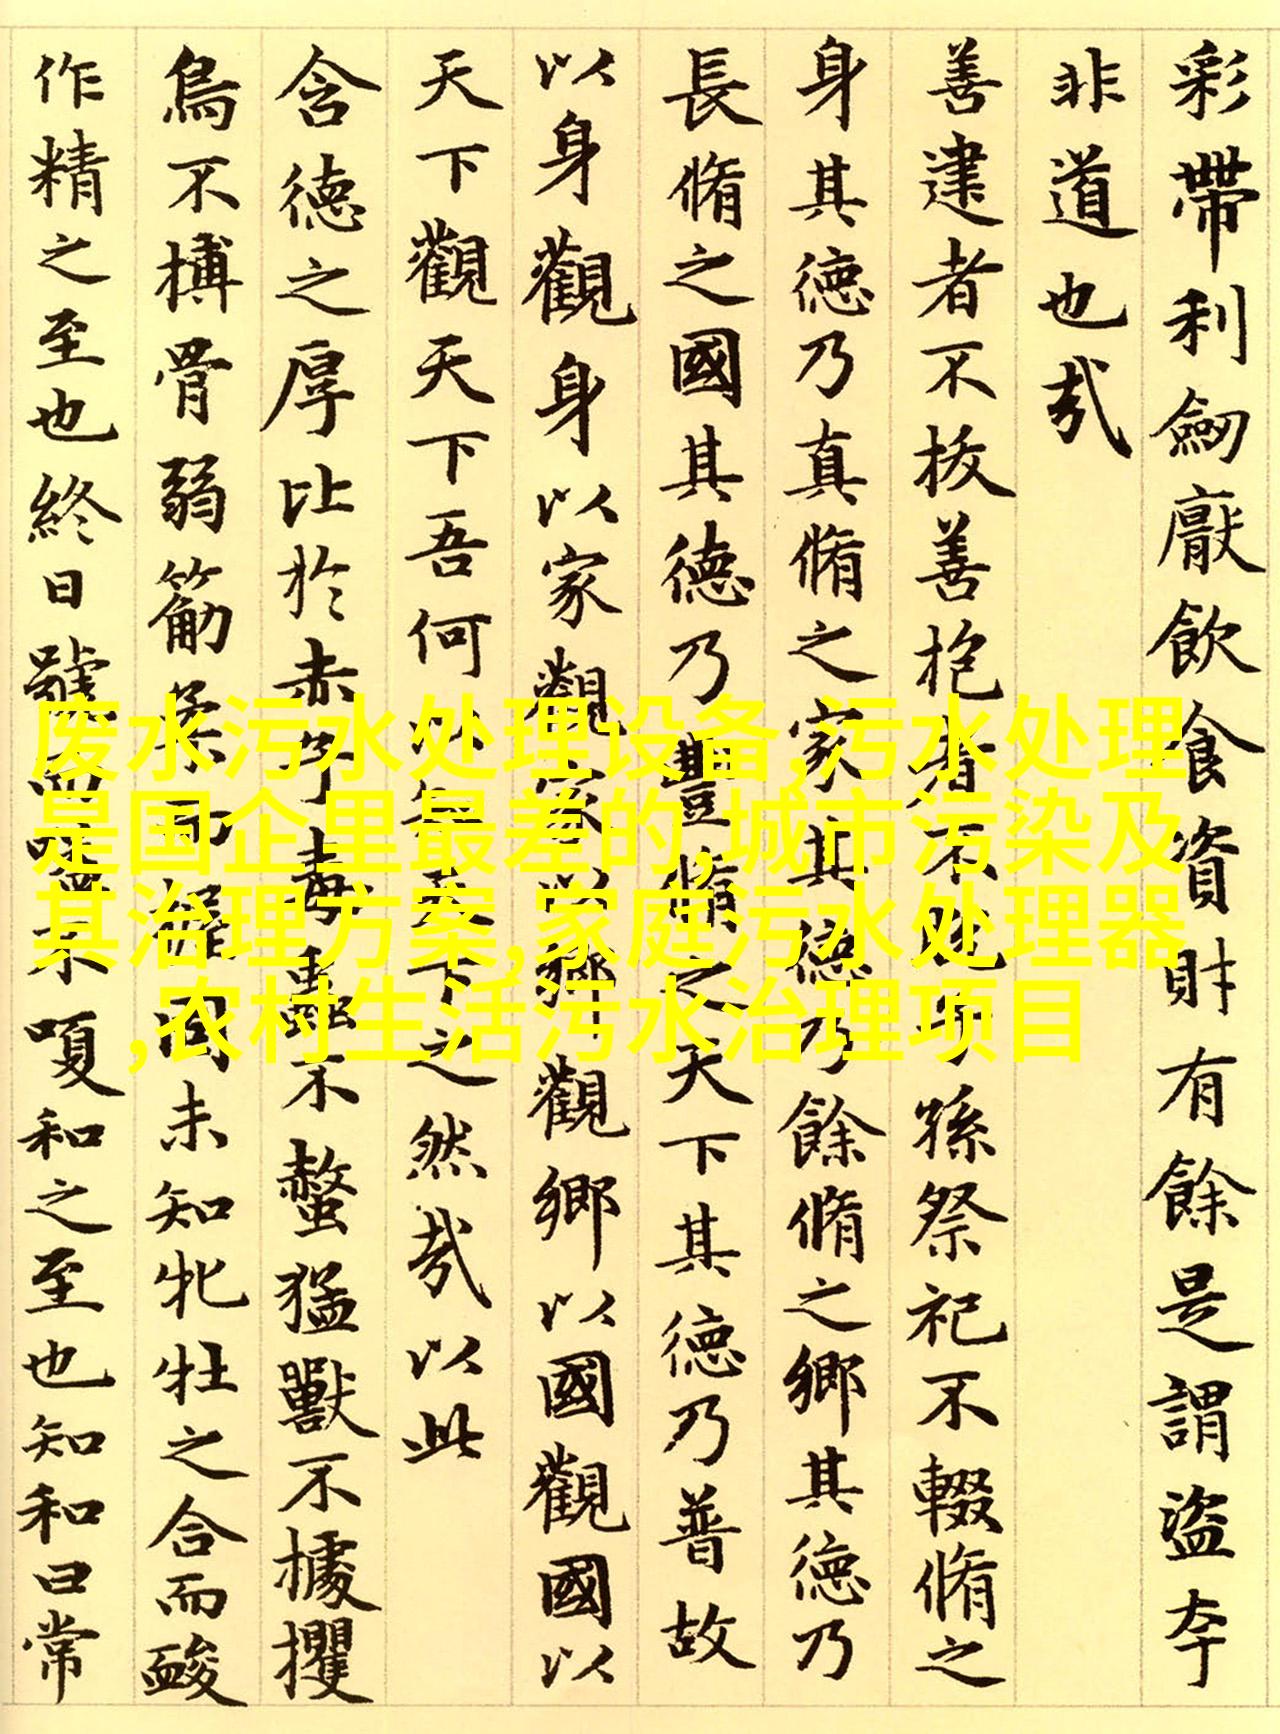 彩帶利劒厭飲食資財有餘是謂盜夸
非道也哉
善建者不拔善抱者不脫子孫祭祀不輟脩之
身其德乃真脩之家其德乃餘脩之鄉其德乃
長脩之國其德乃豐脩之天下其德乃普故
以身觀身以家觀家以鄉觀鄉以國觀國以
天下觀天下吾何以知天下之然哉以此
含德之厚比於赤子毒蟲不螫猛獸不據攫
鳥不搏骨弱筋柔而握固未知牝牡之合而酸
作精之至也終日號而嗌不嗄和之至也知和曰常
废水污水处理设备,污水处理
是国企里最差的,城市污染及
其治理方案,家庭污水处理器
,农村生活污水治理项目